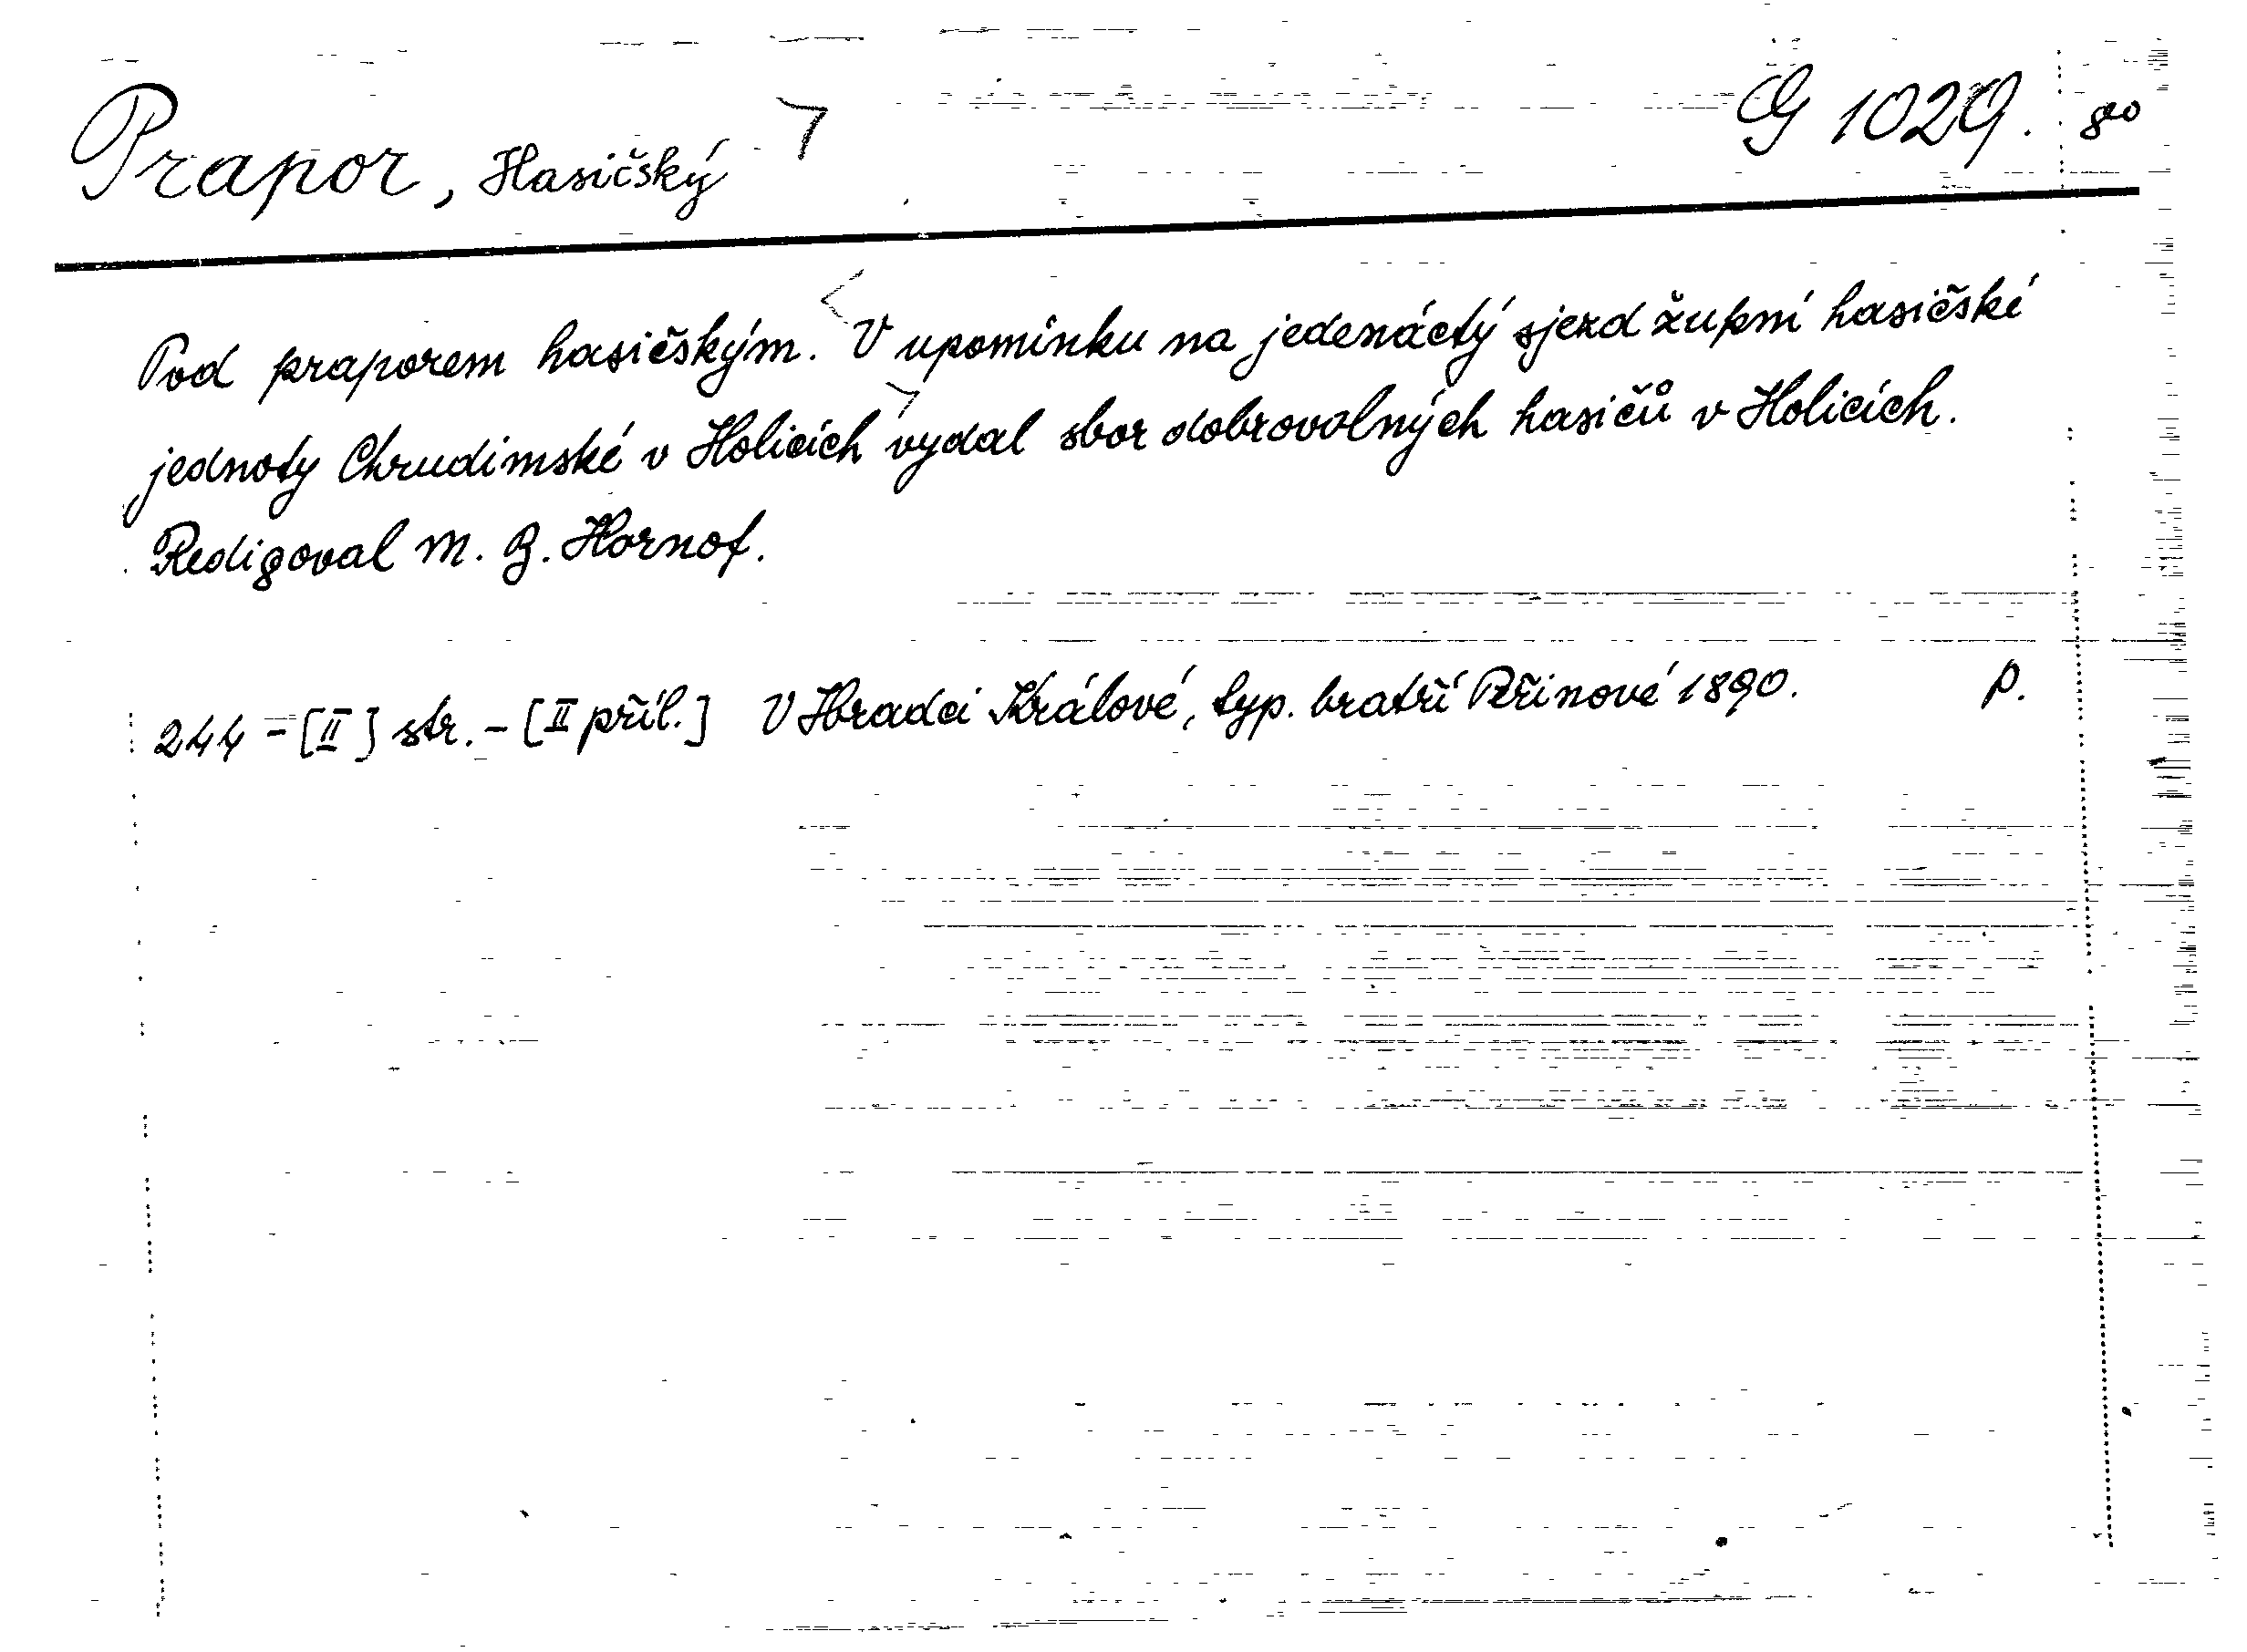 Prapor, Hasičský ㄱ G 1029. 8o
Pod praporem hasičským. V upomínku na jedenáctý sjezd župní hasičské
jednoty Chrudimské v Holicích vydal sbor dobrovolných hasičů v Holicích.
Redigoval M. B. Hornof.
244 - [II] str. - [II příl.] V Hradci Králové, typ. bratří Peřinové 1890. p.